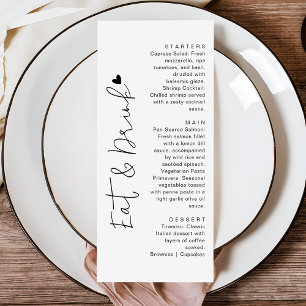 Eat & Drink
STARTERS
Caprese Salad: Fresh
mozzarella, ripe
tomatoes, and basil,
drizzled with
balsamic glaze.
Shrimp Cocktail:
Chilled shrimp served
with a zesty cocktail
sauce.
MAIN
Pan-Seared Salmon:
Fresh salmon fillet
with a lemon dill
sauce, accompanied
by wild rice and
sautéed spinach.
Vegetarian Pasta
Primavera: Seasonal
vegetables tossed
with penne pasta in a
light garlic olive oil
sauce.
DESSERT
Tiramisu: Classic
Italian dessert with
layers of coffee
soaked.
Brownies | Cupcakes